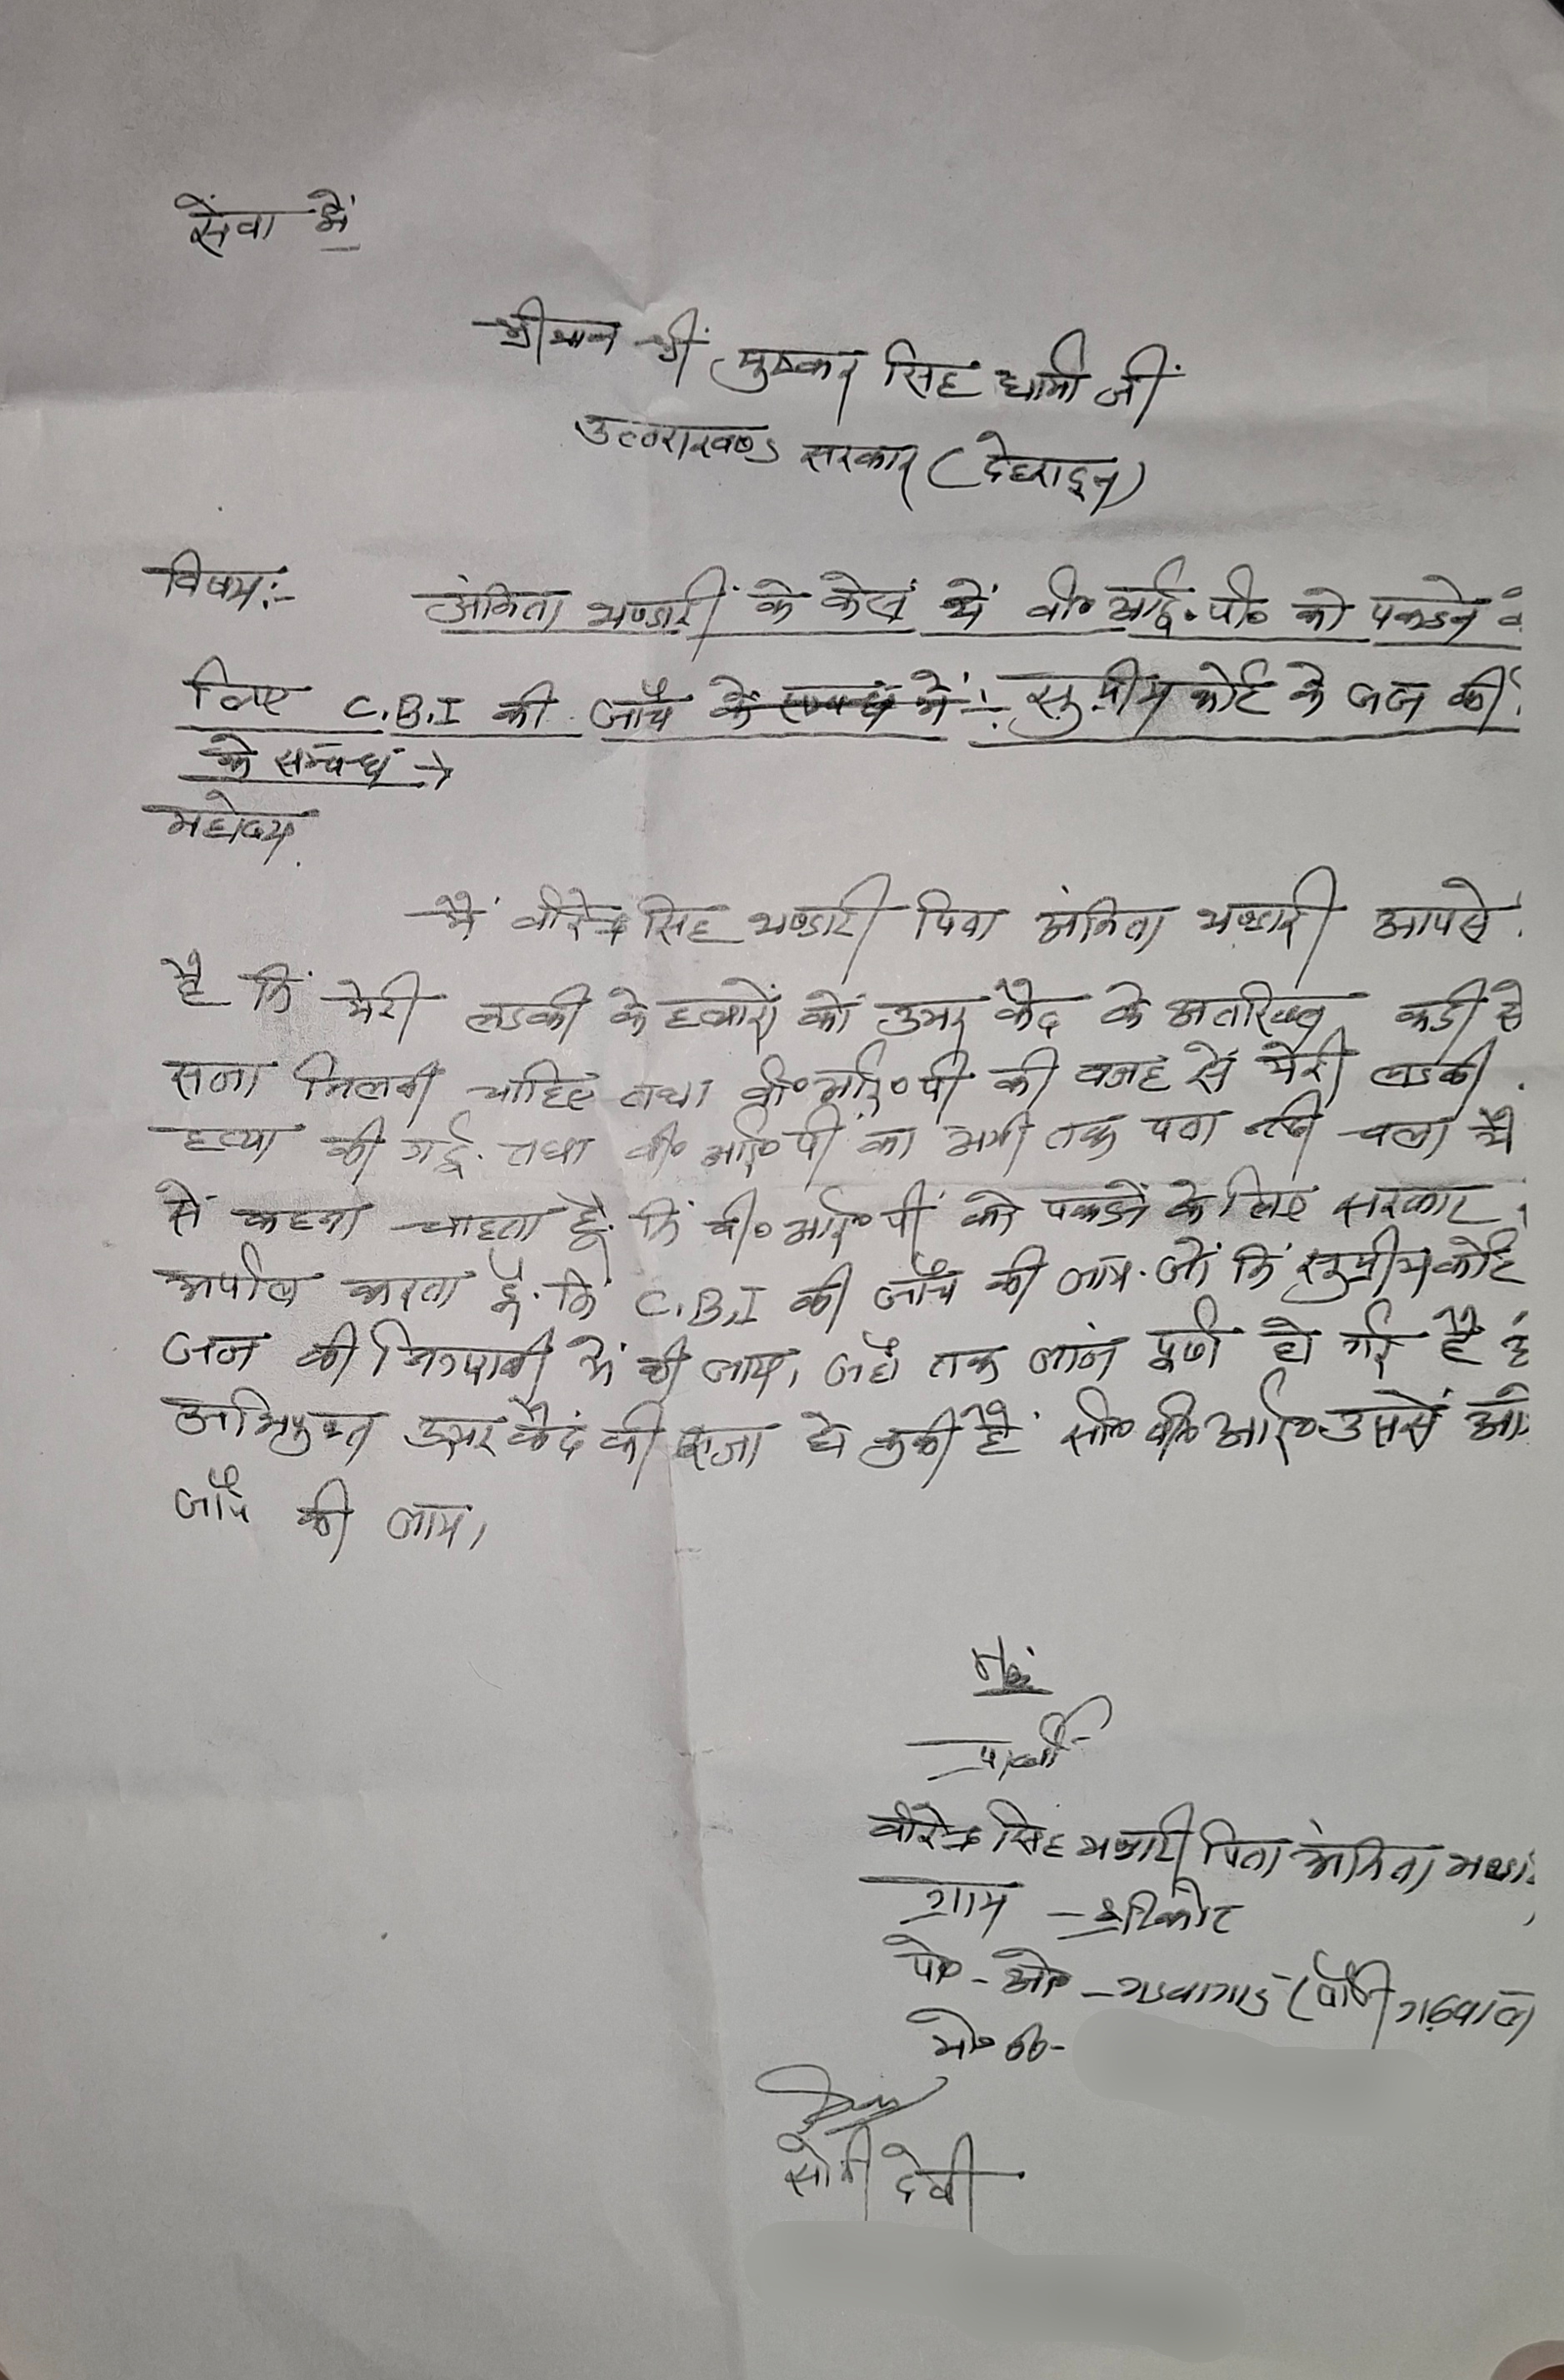 सेवा में
श्रीमान श्री पुष्कर सिंह धामी जी
उत्तराखण्ड सरकार (देहरादून)
विषय:- अंकिता भण्डारी के केस में वी० आई० पी० को पकडने
लिए C.B.I की जाँच के सम्बन्ध में :- सुप्रीम कोर्ट के जज की
के सम्बन्ध →
महोदय
मैं वीरेन्द्र सिंह भण्डारी पिता अंकिता भण्डारी आपसे
है कि मेरी लडकी के हत्यारों को उमर कैद के अतरिक्त कडी से
सजा मिलनी चाहिए तथा वी० आई० पी की वजह से मेरी लडकी
हत्या की गई. तथा वी० आई० पी का अभी तक पता नही चला मै
से कहना चाहता हूँ. कि वी० आई० पी को पकडने के लिए सरकार
अपील करता हूँ. कि C.B.I की जाँच की जाय. जो कि सुप्रीम कोर्ट
जज की निगरानी में की जाय, जहाँ तक जांच पूर्ण हो गई है
अभियुक्त उमर कैद की सजा हो चुकी है सी० वी० आई० उससे
जाँच की जाय,
प्रार्थी
वीरेन्द्र सिंह भण्डारी पिता अंकिता
ग्राम -
पो० - ओ० - (पौडी गढवाल)
मो० न०-
सोनी देवी